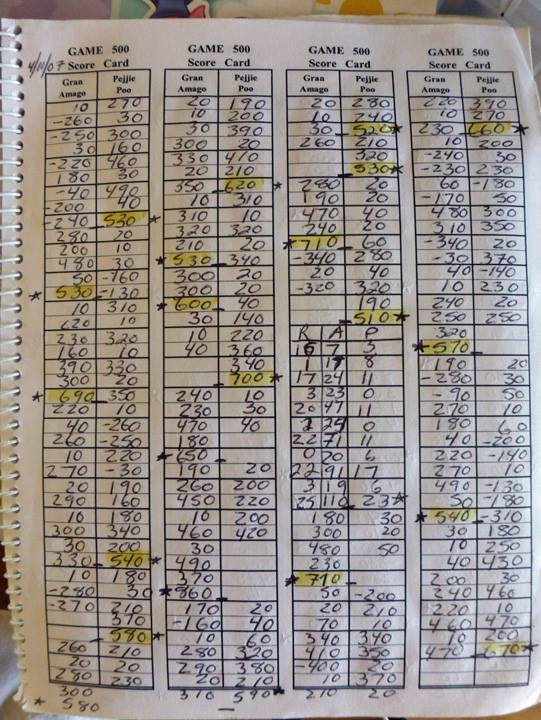 4/11/07
GAME 500
Score Card
Gran Amago Pejjie Poo
10 270
-260 30
-250 300
30 160
-220 460
180 30
-40 490
-200 40
-240 530 *
280 20
200 10
480 30
50 -160
* 530 -130
10 310
620 10
230 320
160 10
390 330
300 20
* 690 350
220 10
40 -260
260 -250
10 220
270 -30
20 190
290 160
10 180
300 340
30 200
330 540 *
10 180
-280 30
-270 210
370
580 *
260 210
20 20
280 230
300
* 580
GAME 500
Score Card
Gran Amago Pejjie Poo
20 190
10 200
30 390
300 20
330 410
20 210
350 620 *
10 310
310 10
320 320
210 20
* 530 340
300 20
300 20
* 600 40
30 140
10 220
40 360
340
700 *
240 10
230 30
470 40
180
* 650
190 20
260 200
450 220
10 200
460 420
30
490
370
* 860
170 20
-160 40
10 60
280 320
290 380
20 210
310 590 *
GAME 500
Score Card
Gran Amago Pejjie Poo
20 280
10 240
30 520 *
260 210
320
530 *
280 20
190 20
470 40
240 20
* 710 60
-340 280
20 40
-320 320
190
510 *
R A P
16 7 3
1 17 8
17 24 11
3 23 0
20 47 11
2 24 0
22 71 11
0 20 6
22 91 17
3 19 6
25 110 23 *
180 30
300 20
480 50
230
* 710
50 -200
20 210
70 10
340 340
410 350
-400 20
10 370
210 20
GAME 500
Score Card
Gran Amago Pejjie Poo
220 390
10 270
230 660 *
10 200
-240 30
-230 230
60 -180
-170 50
480 300
310 350
-340 20
-30 370
40 -140
10 230
240 20
250 250
320
* 570
190 20
-280 30
-90 50
270 10
180 60
40 -200
220 -140
270 10
490 -130
50 -180
* 540 -310
30 180
10 250
40 430
200 30
240 460
220 10
460 470
10 200
470 670 *